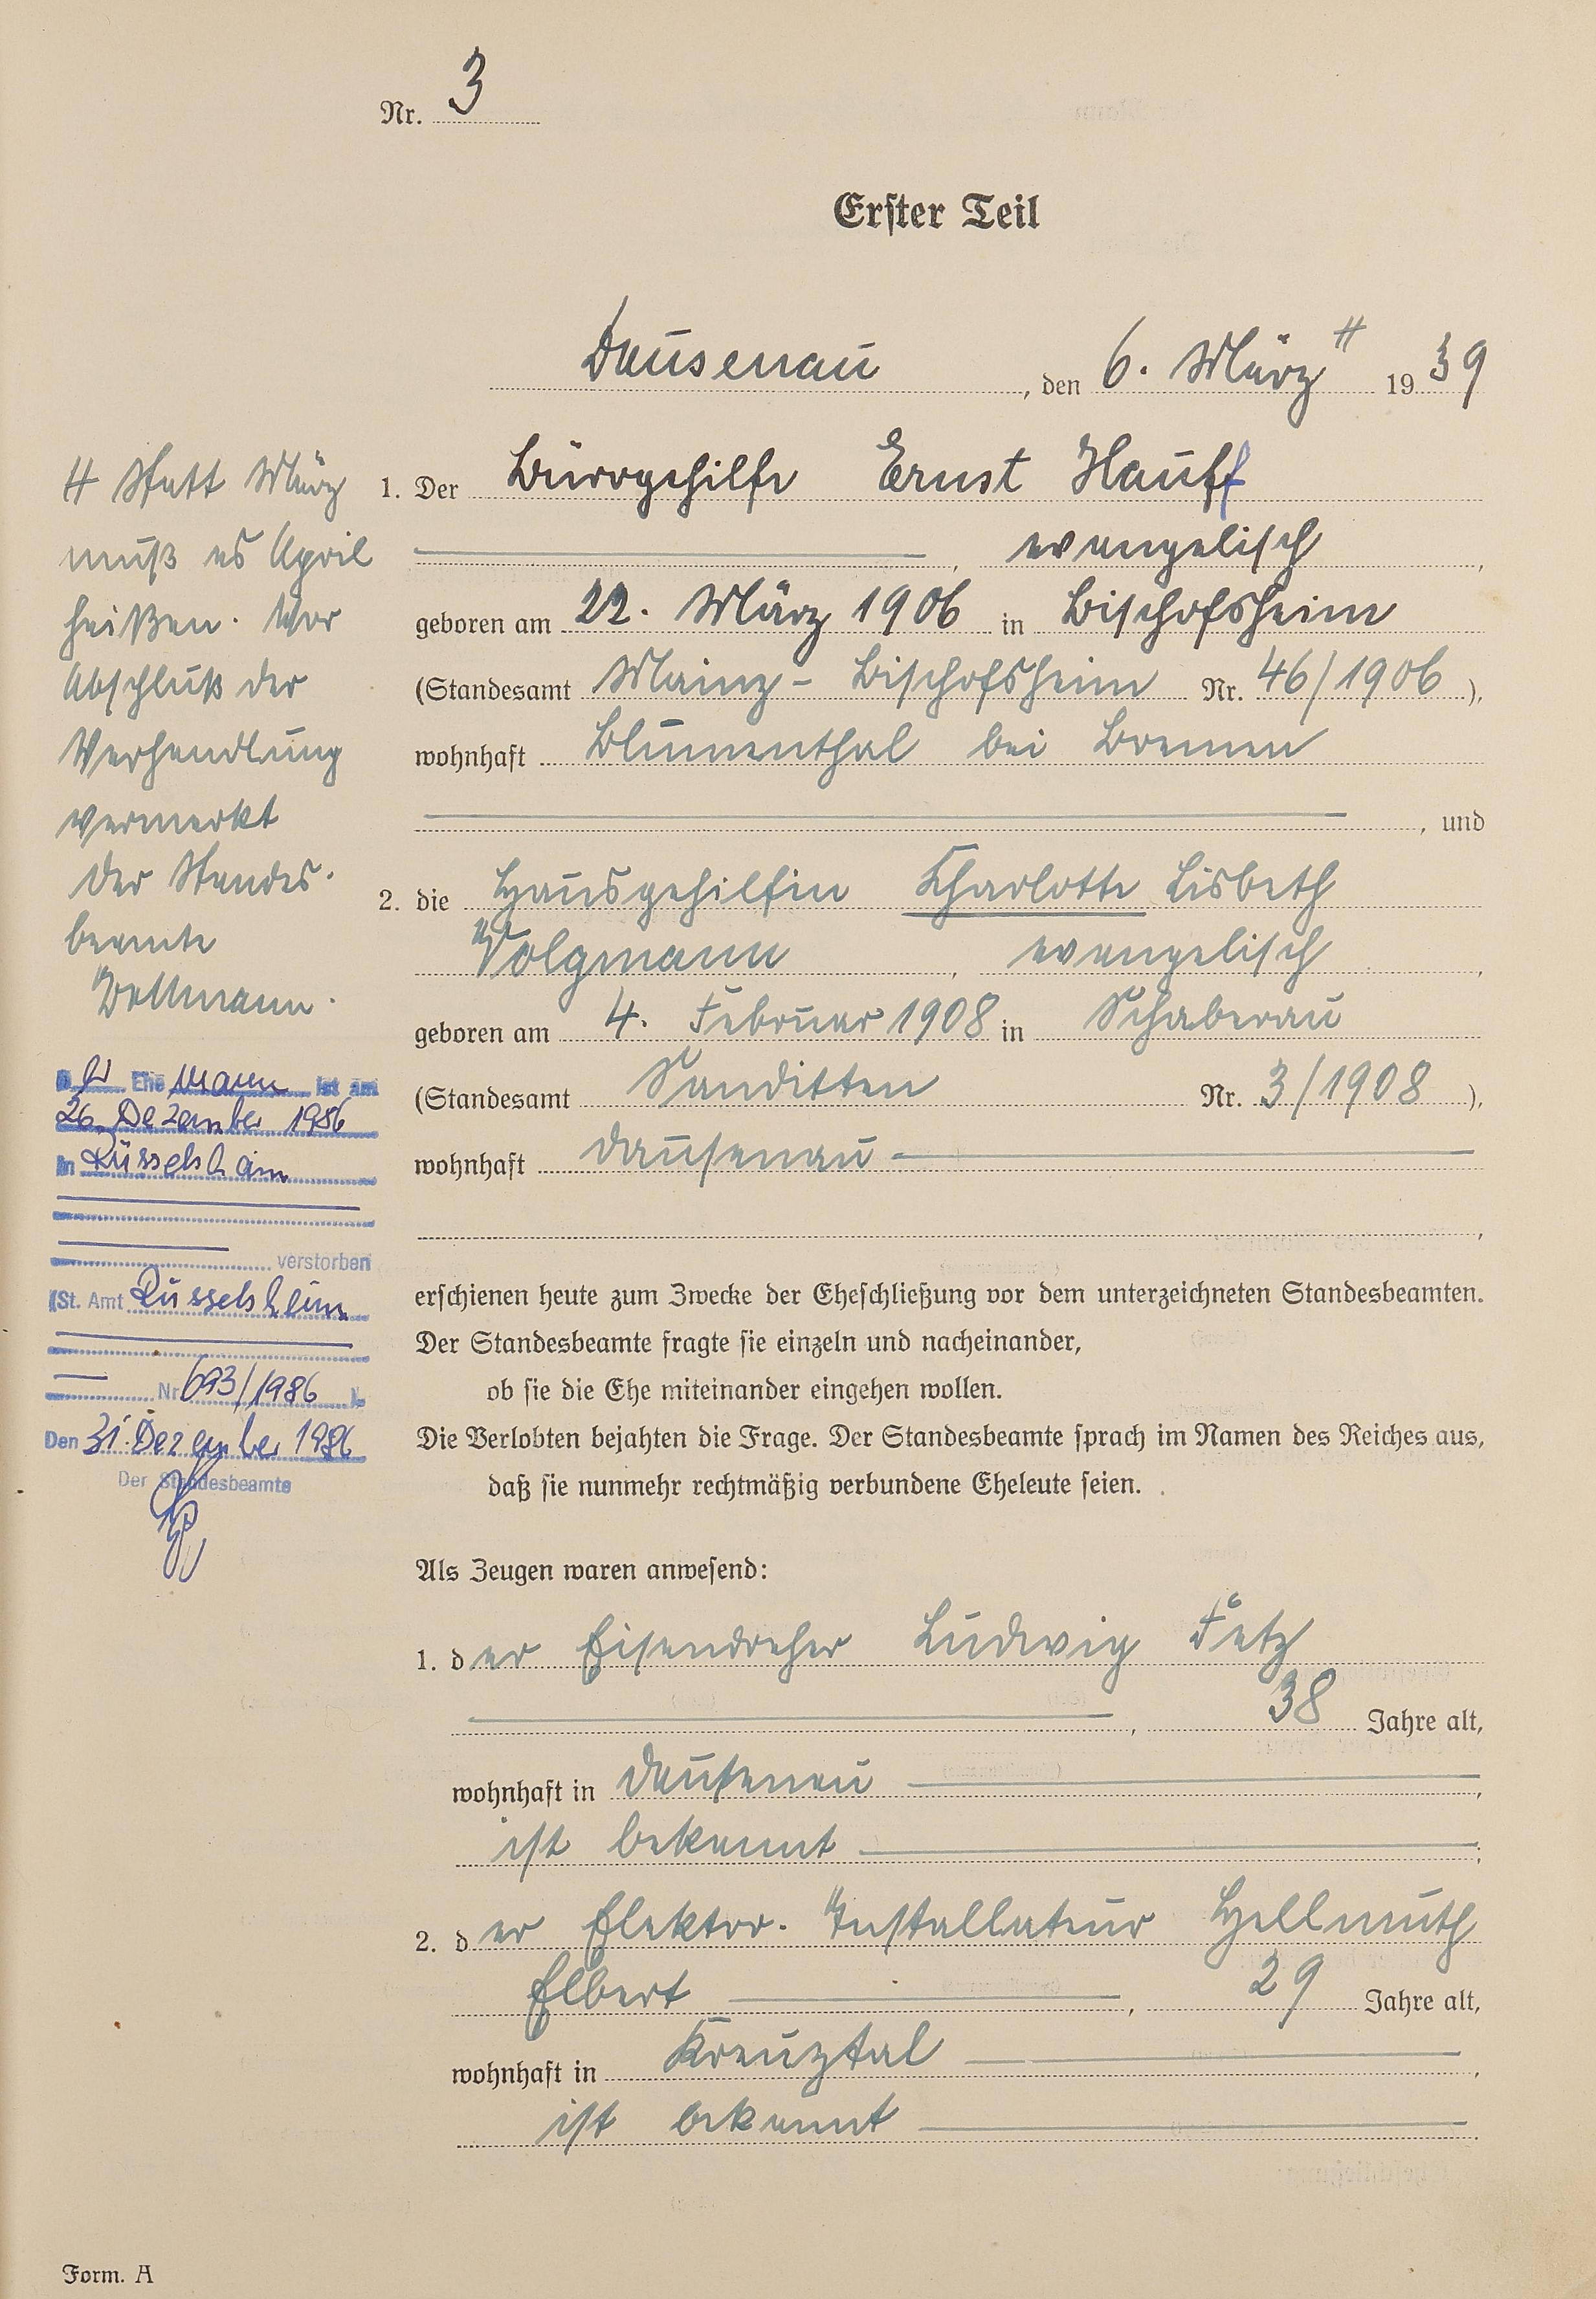 Nr. 3
Erster Teil
Dausenau, den 6. März # 1939
1. Der Bürogehilfe Ernst Hauff
, evangelisch,
geboren am 22. März 1906 in Bischofsheim
(Standesamt Mainz-Bischofsheim Nr. 46/1906),
wohnhaft Blumenthal bei Bremen
, und
2. die Hausgehilfin Charlotte Lisbeth
Volgmann, evangelisch,
geboren am 4. Februar 1908 in Schaberau
(Standesamt Sanditten Nr. 3/1908),
wohnhaft Dausenau
,
erschienen heute zum Zwecke der Eheschließung vor dem unterzeichneten Standesbeamten.
Der Standesbeamte fragte sie einzeln und nacheinander,
ob sie die Ehe miteinander eingehen wollen.
Die Verlobten bejahten die Frage. Der Standesbeamte sprach im Namen des Reiches aus,
daß sie nunmehr rechtmäßig verbundene Eheleute seien.
Als Zeugen waren anwesend:
1. der Eisendreher Ludwig Fetz
, 38 Jahre alt,
wohnhaft in Dausenau,
ist bekannt;
2. der Elektro. Installateur Hellmuth
Elbert, 29 Jahre alt,
wohnhaft in Kreuztal,
ist bekannt.
# Statt März
muß es April
heißen. Vor
Abschluß der
Verhandlung
vermerkt
Der Standes-
beamte
Wollmann.
Der Ehemann ist am
26. Dezember 1986
in Rüsselsheim
verstorben
(St. Amt Rüsselsheim
Nr. 693/1986).
Den 31. Dezember 1986
Der Standesbeamte
Form. A